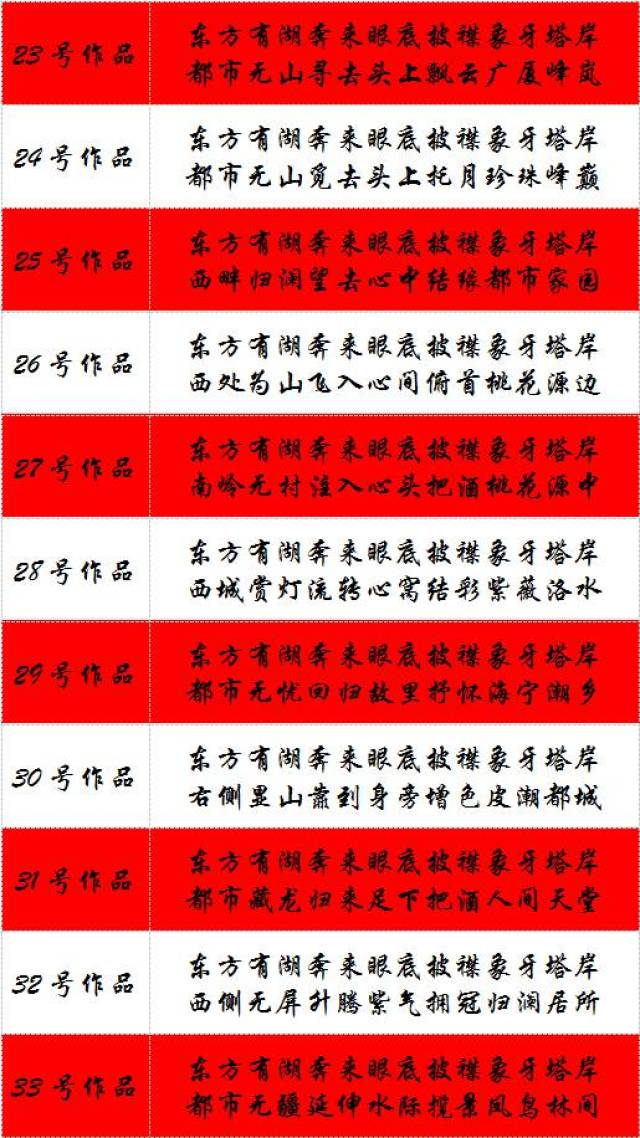 23号作品
东方有湖奔来眼底披襟象牙塔岸
都市无山寻去头上飘云广厦峰岚
24号作品
东方有湖奔来眼底披襟象牙塔岸
都市无山觅去头上托月珍珠峰巅
25号作品
东方有湖奔来眼底披襟象牙塔岸
西畔归澜望去心中结缘都市家园
26号作品
东方有湖奔来眼底披襟象牙塔岸
西处为山飞入心间俯首桃花源边
27号作品
东方有湖奔来眼底披襟象牙塔岸
南岭无村注入心头把酒桃花源中
28号作品
东方有湖奔来眼底披襟象牙塔岸
西城赏灯流转心窝结彩紫薇洛水
29号作品
东方有湖奔来眼底披襟象牙塔岸
都市无忧回归故里抒怀海宁潮乡
30号作品
东方有湖奔来眼底披襟象牙塔岸
右侧显山靠到身旁增色皮潮都城
31号作品
东方有湖奔来眼底披襟象牙塔岸
都市藏龙归来足下把酒人间天堂
32号作品
东方有湖奔来眼底披襟象牙塔岸
西侧无屏升腾紫气拥冠归澜居所
33号作品
东方有湖奔来眼底披襟象牙塔岸
都市无疆延伸水际揽景凤鸟林间